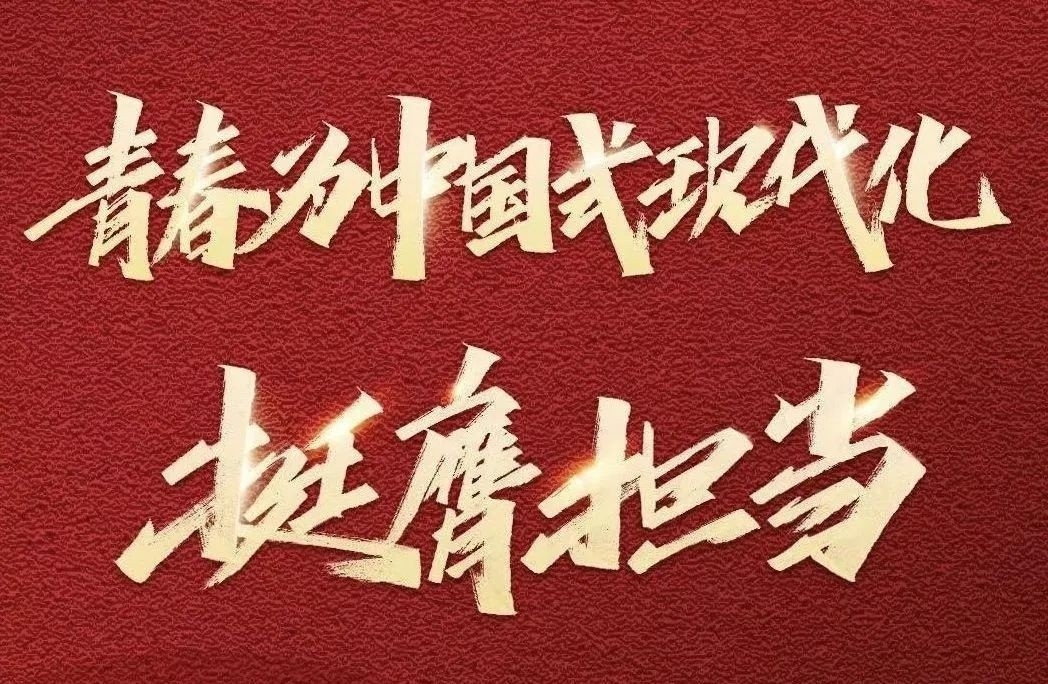 青春为中国式现代化
挺膺担当